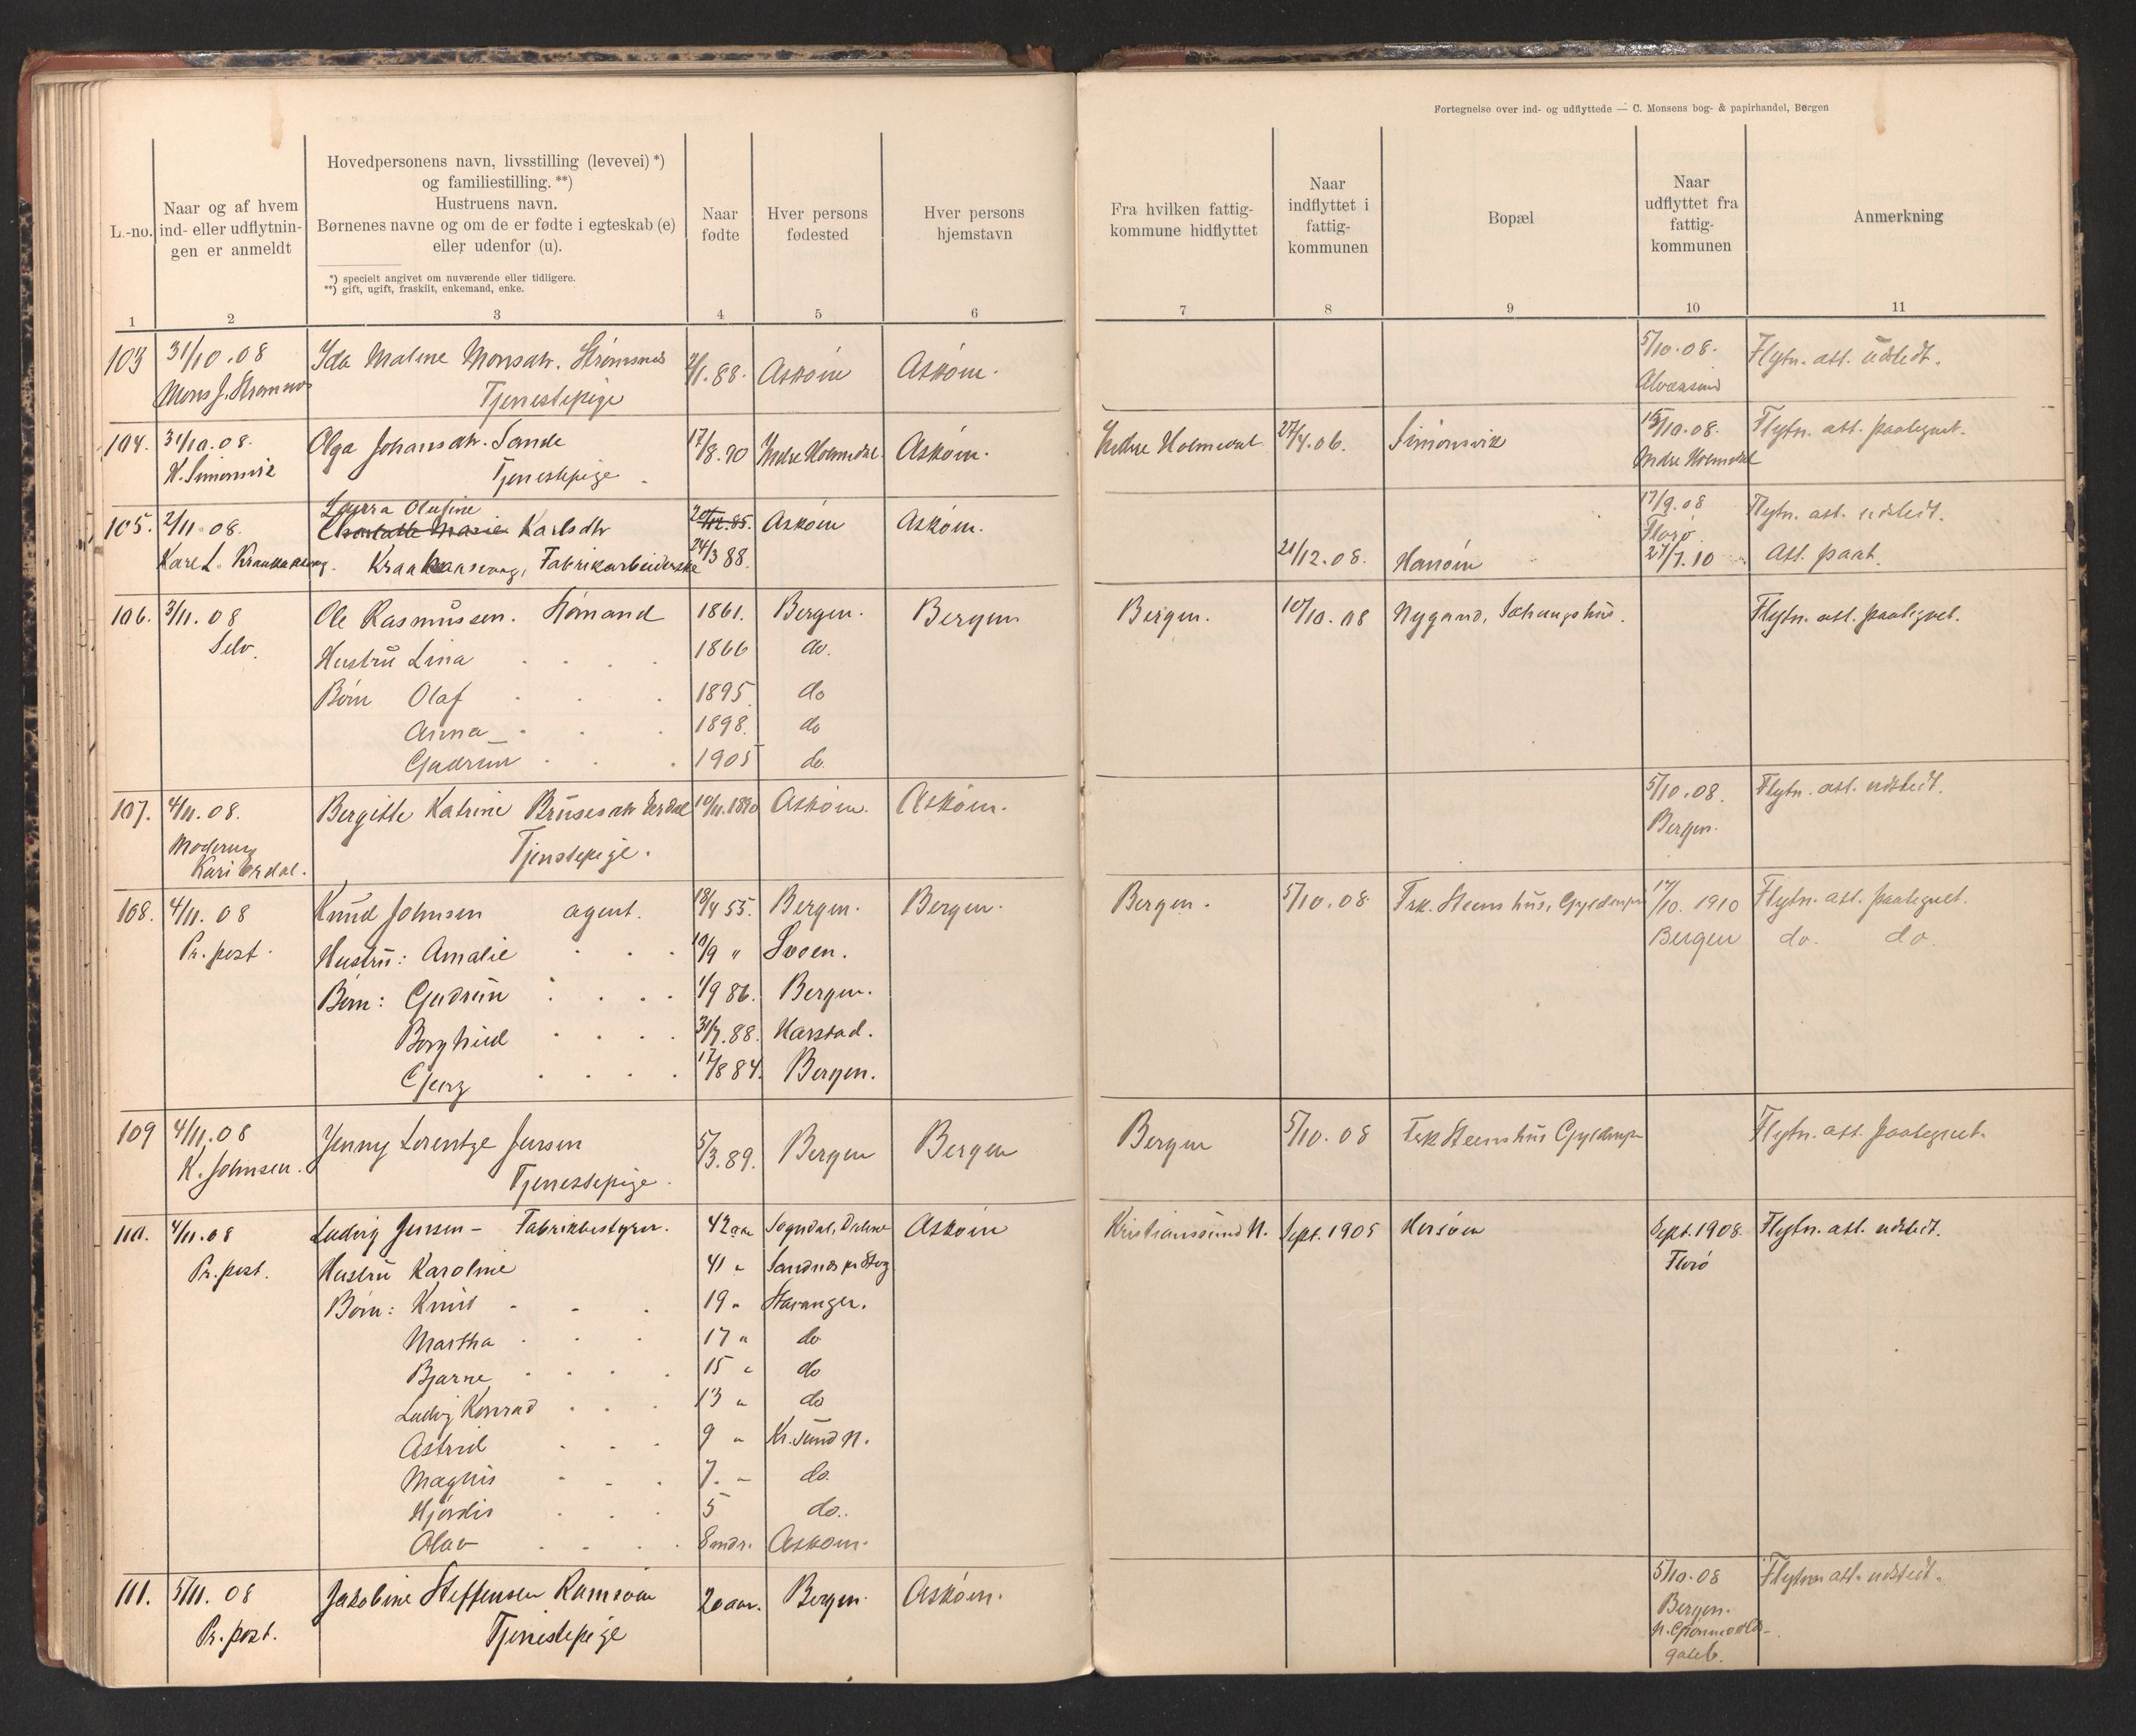 Fortegnelse over ind- og udflyttede — C. Monsens bog- & papirhandel, Bergen
L.-no.
Naar og af hvem
ind- eller udflytnin-
gen er anmeldt
Hovedpersonens navn, livsstilling (levevei) *)
og familiestilling. **)
Hustruens navn.
Børnenes navne og om de er fødte i egteskab (e)
eller udenfor (u).
*) specielt angivet om nuværende eller tidligere.
**) gift, ugift, fraskilt, enkemand, enke.
Naar
fødte
Hver persons
fødested
Hver persons
hjemstavn
Fra hvilken fattig-
kommune hidflyttet
Naar
indflyttet i
fattig-
kommunen
Bopæl
Naar
udflyttet fra
fattig-
kommunen
Anmerkning
1 2 3 4 5 6 7 8 9 10 11
103 31/10.08 Ida Maline Monsdtr. Strømsnes /1.88. Askøien Askøien. 5/10.08. Flytn. att. udstedt.
Mons J. Strømsnes Tjenestepige Alversund
104. 31/10.08. Olga Johansdtr. Sande 17/8.90 Indre Holmedal Askøien. Indre Holmedal 27/4.06. Simonsvik 15/10.08. Flytn. att. paategnet.
K. Simonsvik Tjenestepige Indre Holmedal
Laura Olufine 17/9.08 Flytn. att. udstedt.
105. 2/11.08. Charlotte Marie Karlsdtr 20/12.85. Askøien Askøien. Florø
Karl L. Kraakaasvaag. Kraakaasvaag, Fabrikarbeiderske 24/3 88. 21/12.08. Hanøien 27/7.10 Att. paat.
106. 3/11.08 Ole Rasmussen. Sømand 1861. Bergen. Bergen Bergen. 10/10.08 Nygaard, Schaugshus. Flytn. att. paategnet.
Selv. Hustru Lina 1866 do.
Børn Olaf 1895 do
Anna 1898. do
Gudrun 1905 do.
107. 4/11.08. Bergitte Katrine Brusesdtr Erdal 10/11.1890 Askøien. Askøien. 5/10.08. Flytn. att. udstedt.
Moderen Bergen.
Kari Erdal. Tjenstepige.
108. 4/11.08 Knud Johnsen agent. 18/4 55. Bergen. Bergen. Bergen. 5/10.08. Frk. Steens hus, 17/10.1910 Flytn. att. paategnet.
Pr. post. Hustru: Amalie 10/9 " Svoen. Bergen do. do.
Børn: Gudrun 1/9 86. Bergen.
Borghild 31/7.88. Harstad.
Georg 17/8 84. Bergen.
109 4/11.08 Jenny Lorentze Jensen 5/3.89. Bergen Bergen Bergen 5/10.08 Frk Steens hus Flytn. att. paategnet.
K. Johnsen. Tjenestepige.
110. 4/11.08 Ludvig Jensen - Fabrikbestyrer. 42 aar Sogndal, Dalene Askøien Kristianssund N. Sept. 1905 Herføen Sept. 1908. Flytn. att. udstedt.
Pr. post. Hustru Karoline 41 " Sandnes pr Stvg Florø
Børn: Knut 19 " Stavanger.
Martha 17 " do
Bjarne 15 " do
Ludvig Konrad 13 " do
Astrid 9 " Kr.sund N.
Magnus 7. " do.
Hjørdis 5 do.
Olav 8 mdr. Askøien.
111. 5/11.08 Jakobine Steffensen Ramsøien 20 aar. Bergen. Askøien. 5/10.08 Flytn. att. udstedt.
Pr. post. Tjenestepige Bergen.